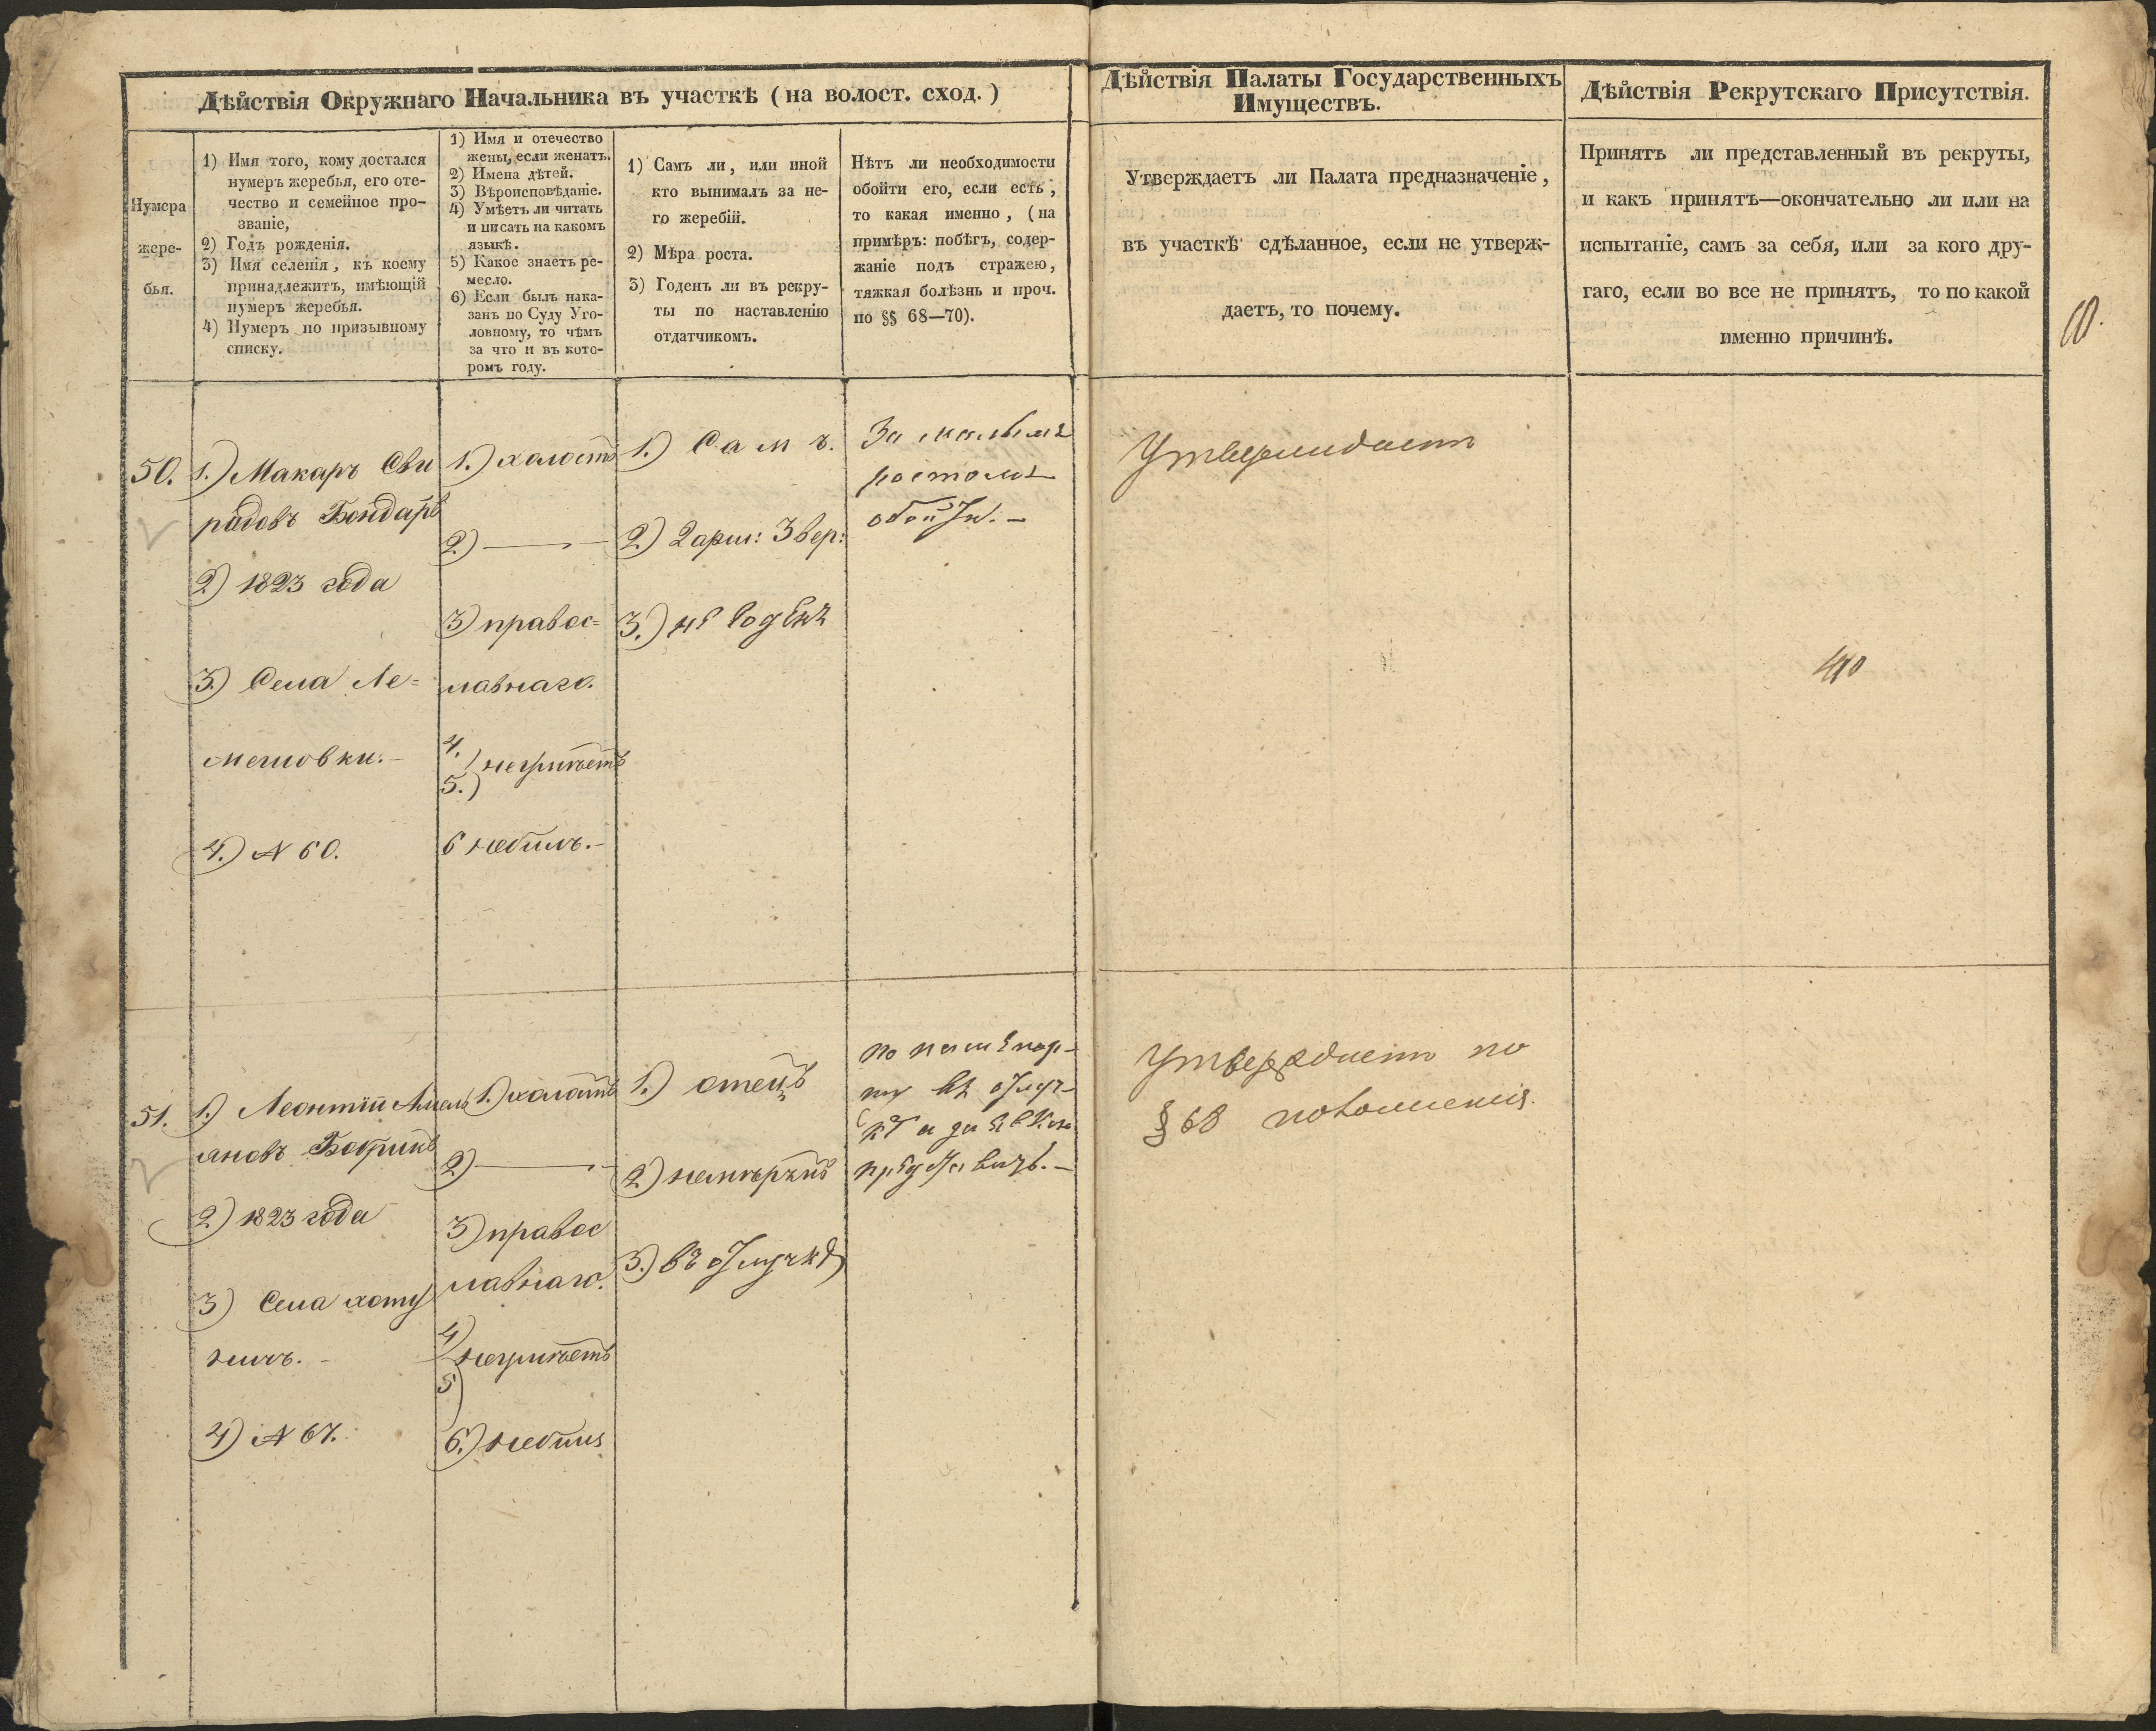 Дѣйствія Окружнаго Начальника въ участкѣ (на волост. сход.)
Нумера
жере-
бья.
1) Имя того, кому достался
нумеръ жеребья, его оте-
чество и семейное про-
званіе,
2) Годъ рожденія.
3) Имя селенія, къ коему
принадлежитъ, имѣющій
нумеръ жеребья.
4) Нумеръ по призывному
списку.
1) Имя и отечество
жены, если женатъ.
2) Имена дѣтей.
3) Вѣроисповѣданіе.
4) Умѣетъ ли читать
и писать на какомъ
языкѣ.
5) Какое знаетъ ре-
месло.
6) Если былъ нака-
занъ по Суду Уго-
ловному, то чѣмъ
за что и въ кото-
ромъ году.
1) Самъ ли, или иной
кто вынималъ за не-
го жеребій.
2) Мѣра роста.
3) Годенъ ли въ рекру-
ты по наставленію
отдатчикомъ.
Нѣтъ ли необходимости
обойти его, если есть,
то какая именно, (на
примѣръ: побѣгъ, содер-
жаніе подъ стражею,
тяжкая болѣзнь и проч.
по §§ 68—70).
Дѣйствія Палаты Государственныхъ
Имуществъ.
Утверждаетъ ли Палата предназначеніе,
въ участкѣ сдѣланное, если не утверж-
даетъ, то почему.
Дѣйствія Рекрутскаго Присутствія.
Принятъ ли представленный въ рекруты,
и какъ принятъ—окончательно ли или на
испытаніе, самъ за себя, или за кого дру-
гаго, если во все не принятъ, то по какой
именно причинѣ.
50.
1.) Макаръ Сви
ридовъ Бондарь
2) 1823 года
3) Села Ле=
метовки.-
4.) N 60.
1.) холостъ
2) —
3) правос=
лавнаго.
4.
5.) неумѣетъ
6 небылъ.-
1.) Самъ.
2) 2 арш: 3 вер:
3.) не годенъ
За малымъ
ростомъ
Утверждаетъ
51.
1.) Леонтій
2) 1823 года
3) Села хоту
ничъ.-
4) N 67.
1.) холостъ
2) —
3) правос
лавнаго.
4)
5) неумѣетъ
6.) небылъ
1.) отецъ
2) немѣрянъ
3.) въ отлучкѣ
по пашпор-
ту въ отлуч-
Утверждаетъ по
§ 68 положенія.